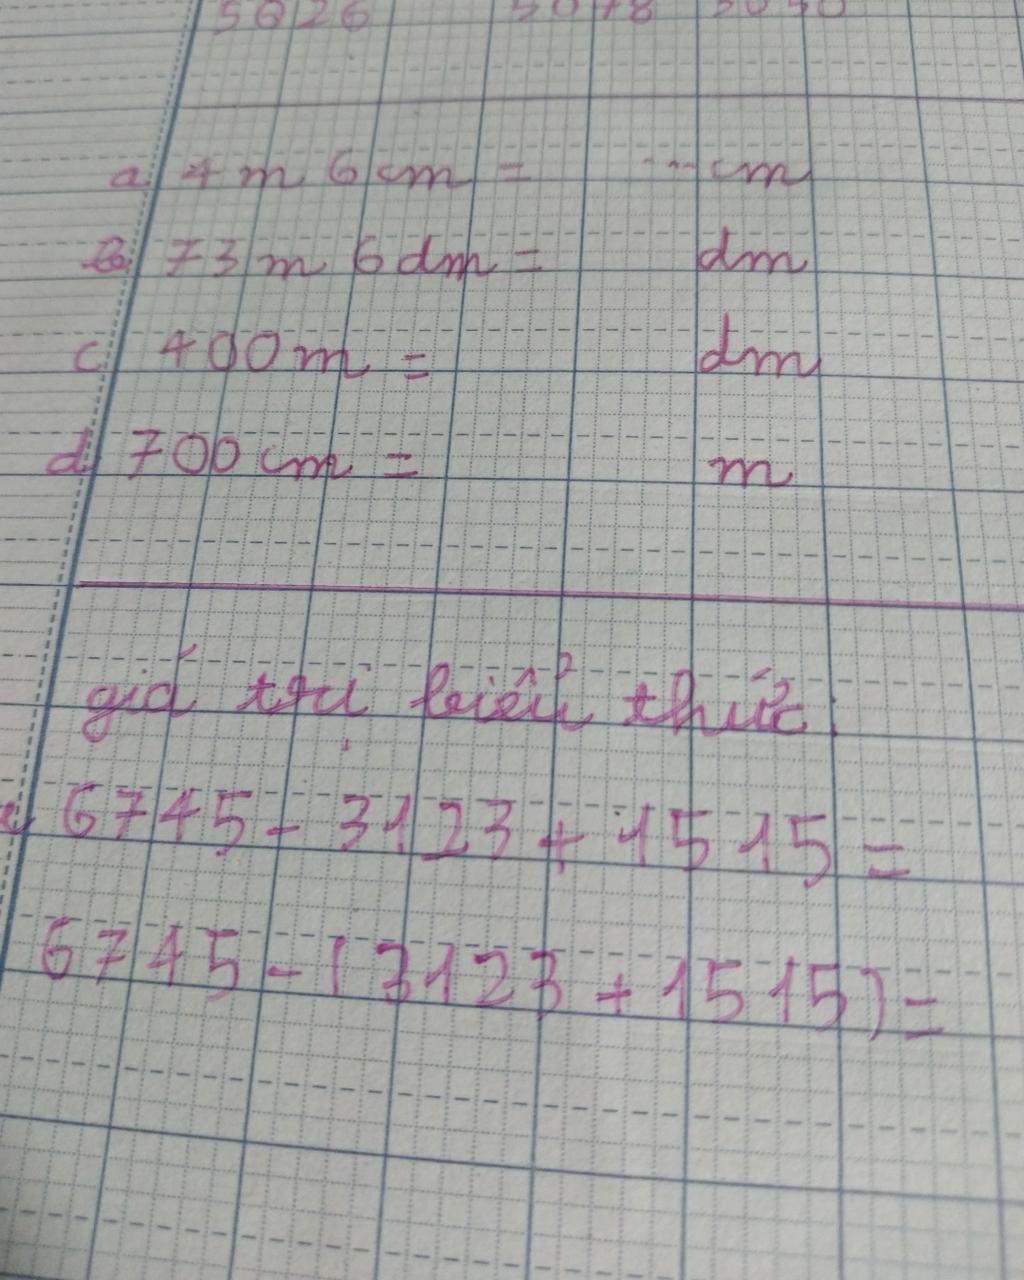 a, 4m 6cm = ... cm
b, 73m 6dm = dm
c, 400m = dm
d, 700cm = m
giá trị biểu thức:
6745 - 3123 + 1515 =
6745 - (3123 + 1515) =